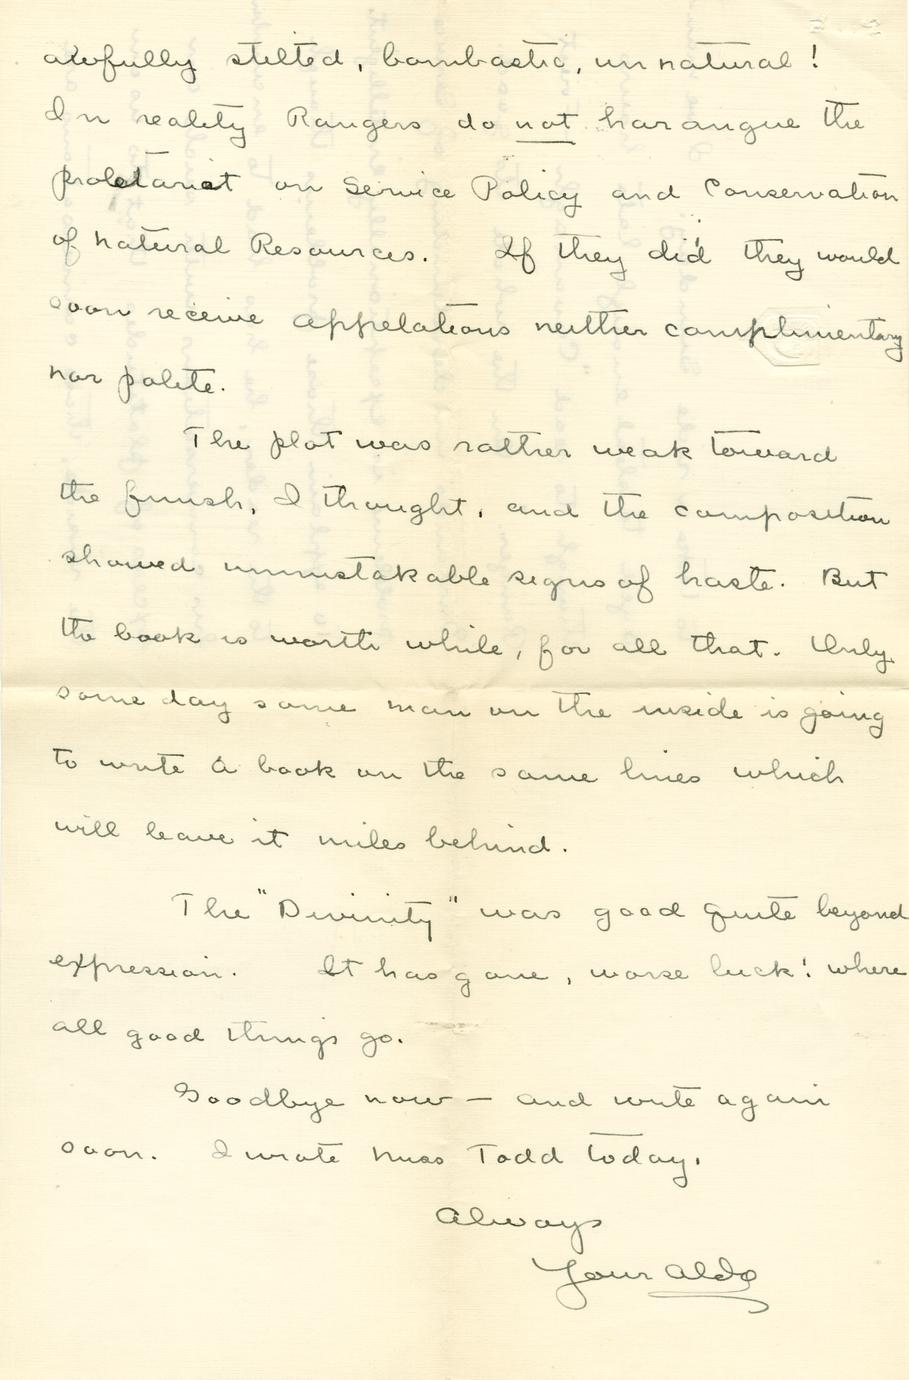 awfully stilted, bombastic, unnatural!
In reality Rangers do not harangue the
proletariat on Service Policy and Conservation
of natural Resources. If they did they would
soon receive appelations neither complimentary
nor polite.
The plot was rather weak toward
the finish, I thought, and the composition
showed unmistakable signs of haste. But
the book is worth while, for all that. Only
some day some man on the inside is going
to write a book on the same lines which
will leave it miles behind.
The "Divinity" was good quite beyond
expression. It has gone, worse luck! where
all good things go.
Goodbye now — and write again
soon. I wrote Miss Todd today.
Always
Your Aldo